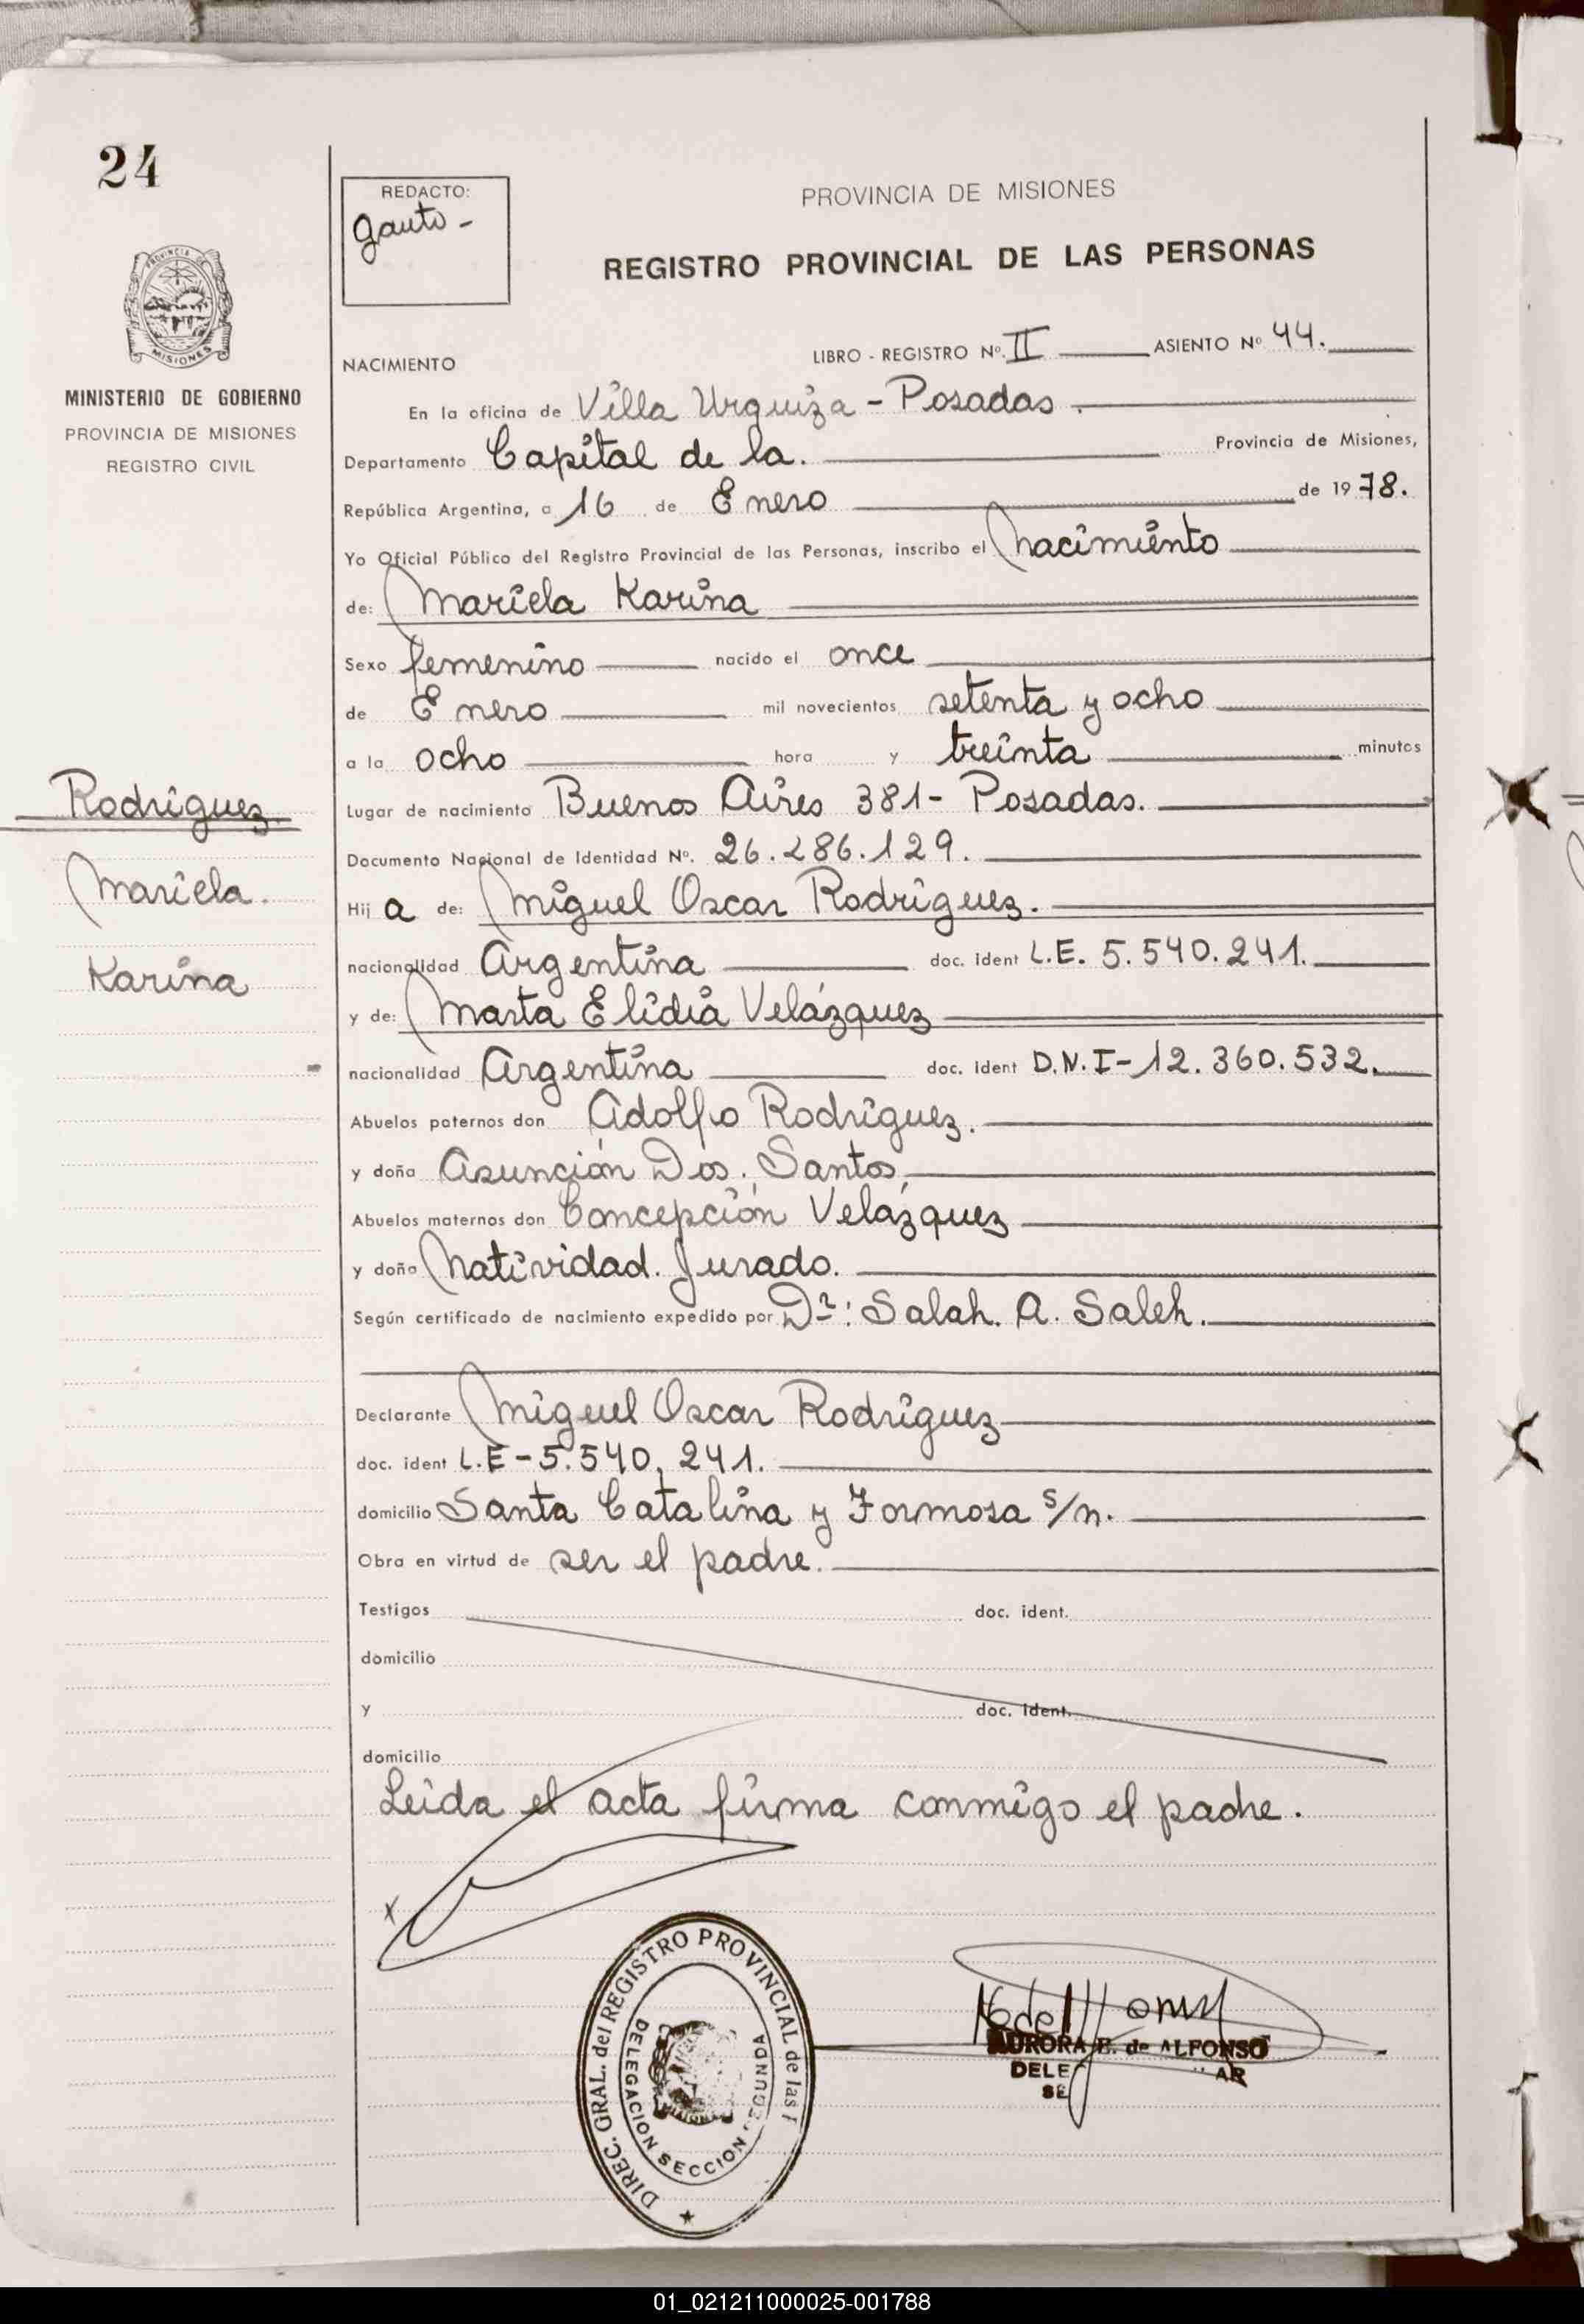 24
REDACTO:
Gauto-
PROVINCIA DE MISIONES
REGISTRO PROVINCIAL DE LAS PERSONAS
PROVINCIA DE
MISIONES
MINISTERIO DE GOBIERNO
PROVINCIA DE MISIONES
REGISTRO CIVIL
NACIMIENTO LIBRO - REGISTRO Nº. II ASIENTO Nº 44.
En la oficina de Villa Urquiza - Posadas.
Departamento Capital de la. Provincia de Misiones,
República Argentina, a 16 de Enero de 1978.
Yo Oficial Público del Registro Provincial de las Personas, inscribo el nacimiento
de: Mariela Karina
Sexo femenino nacido el once
de Enero mil novecientos setenta y ocho
a la ocho hora y treinta minutos
Lugar de nacimiento Buenos Aires 381- Posadas.
Documento Nacional de Identidad Nº. 26.286.129.
Hij a de: Miguel Oscar Rodriguez.
nacionalidad Argentina doc. ident L.E. 5.540.241.
y de: Marta Elidia Velázquez
nacionalidad Argentina doc. ident D.N.I- 12.360.532.
Abuelos paternos don Adolfo Rodriguez.
y doña Asunción Dos. Santos,
Abuelos maternos don Concepción Velázquez
y doña Natividad. Jurado.
Según certificado de nacimiento expedido por Dr: Salah. A. Saleh.
Declarante Miguel Oscar Rodriguez
doc. ident L.E-5.540.241.
domicilio Santa Catalina y Formosa s/n.
Obra en virtud de ser el padre.
Testigos doc. ident.
domicilio
y doc. ident.
domicilio
Leida el acta firma conmigo el padre.
Rodriguez
Mariela.
Karina
x
DIREC. GRAL. del REGISTRO PROVINCIAL de las
DELEGACION SECCION SEGUNDA
AURORA E. de ALFONSO
01_021211000025-001788